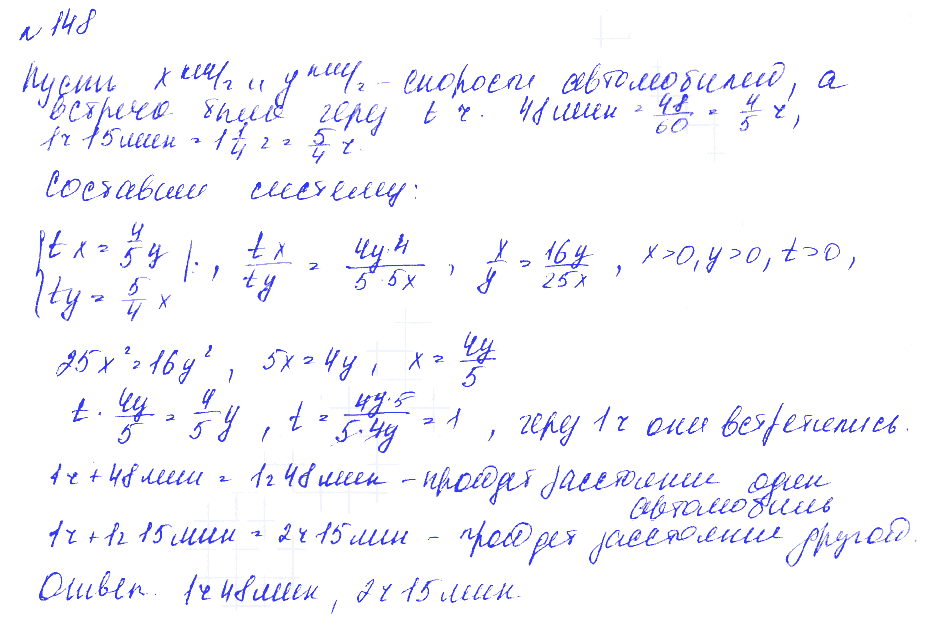 №148
Пусть x км/ч и y км/ч - скорости автомобилей, а
встреча была через t ч. 48 мин = 48/60 = 4/5 ч,
1ч 15мин = 1 1/4 ч = 5/4 ч.
Составим систему:
{tx = 4/5 y, ty = 5/4 x |:, tx/ty = 4y·4/5·5x, x/y = 16y/25x, x>0, y>0, t>0,
25x² = 16y², 5x = 4y, x = 4y/5
t · 4y/5 = 4/5 y, t = 4y·5/5·4y = 1, через 1ч они встретились.
1ч + 48мин = 1ч 48мин - пройдет расстояние один
автомобиль
1ч + 1ч 15мин = 2ч 15мин - пройдет расстояние другой.
Ответ. 1ч 48мин, 2ч 15мин.